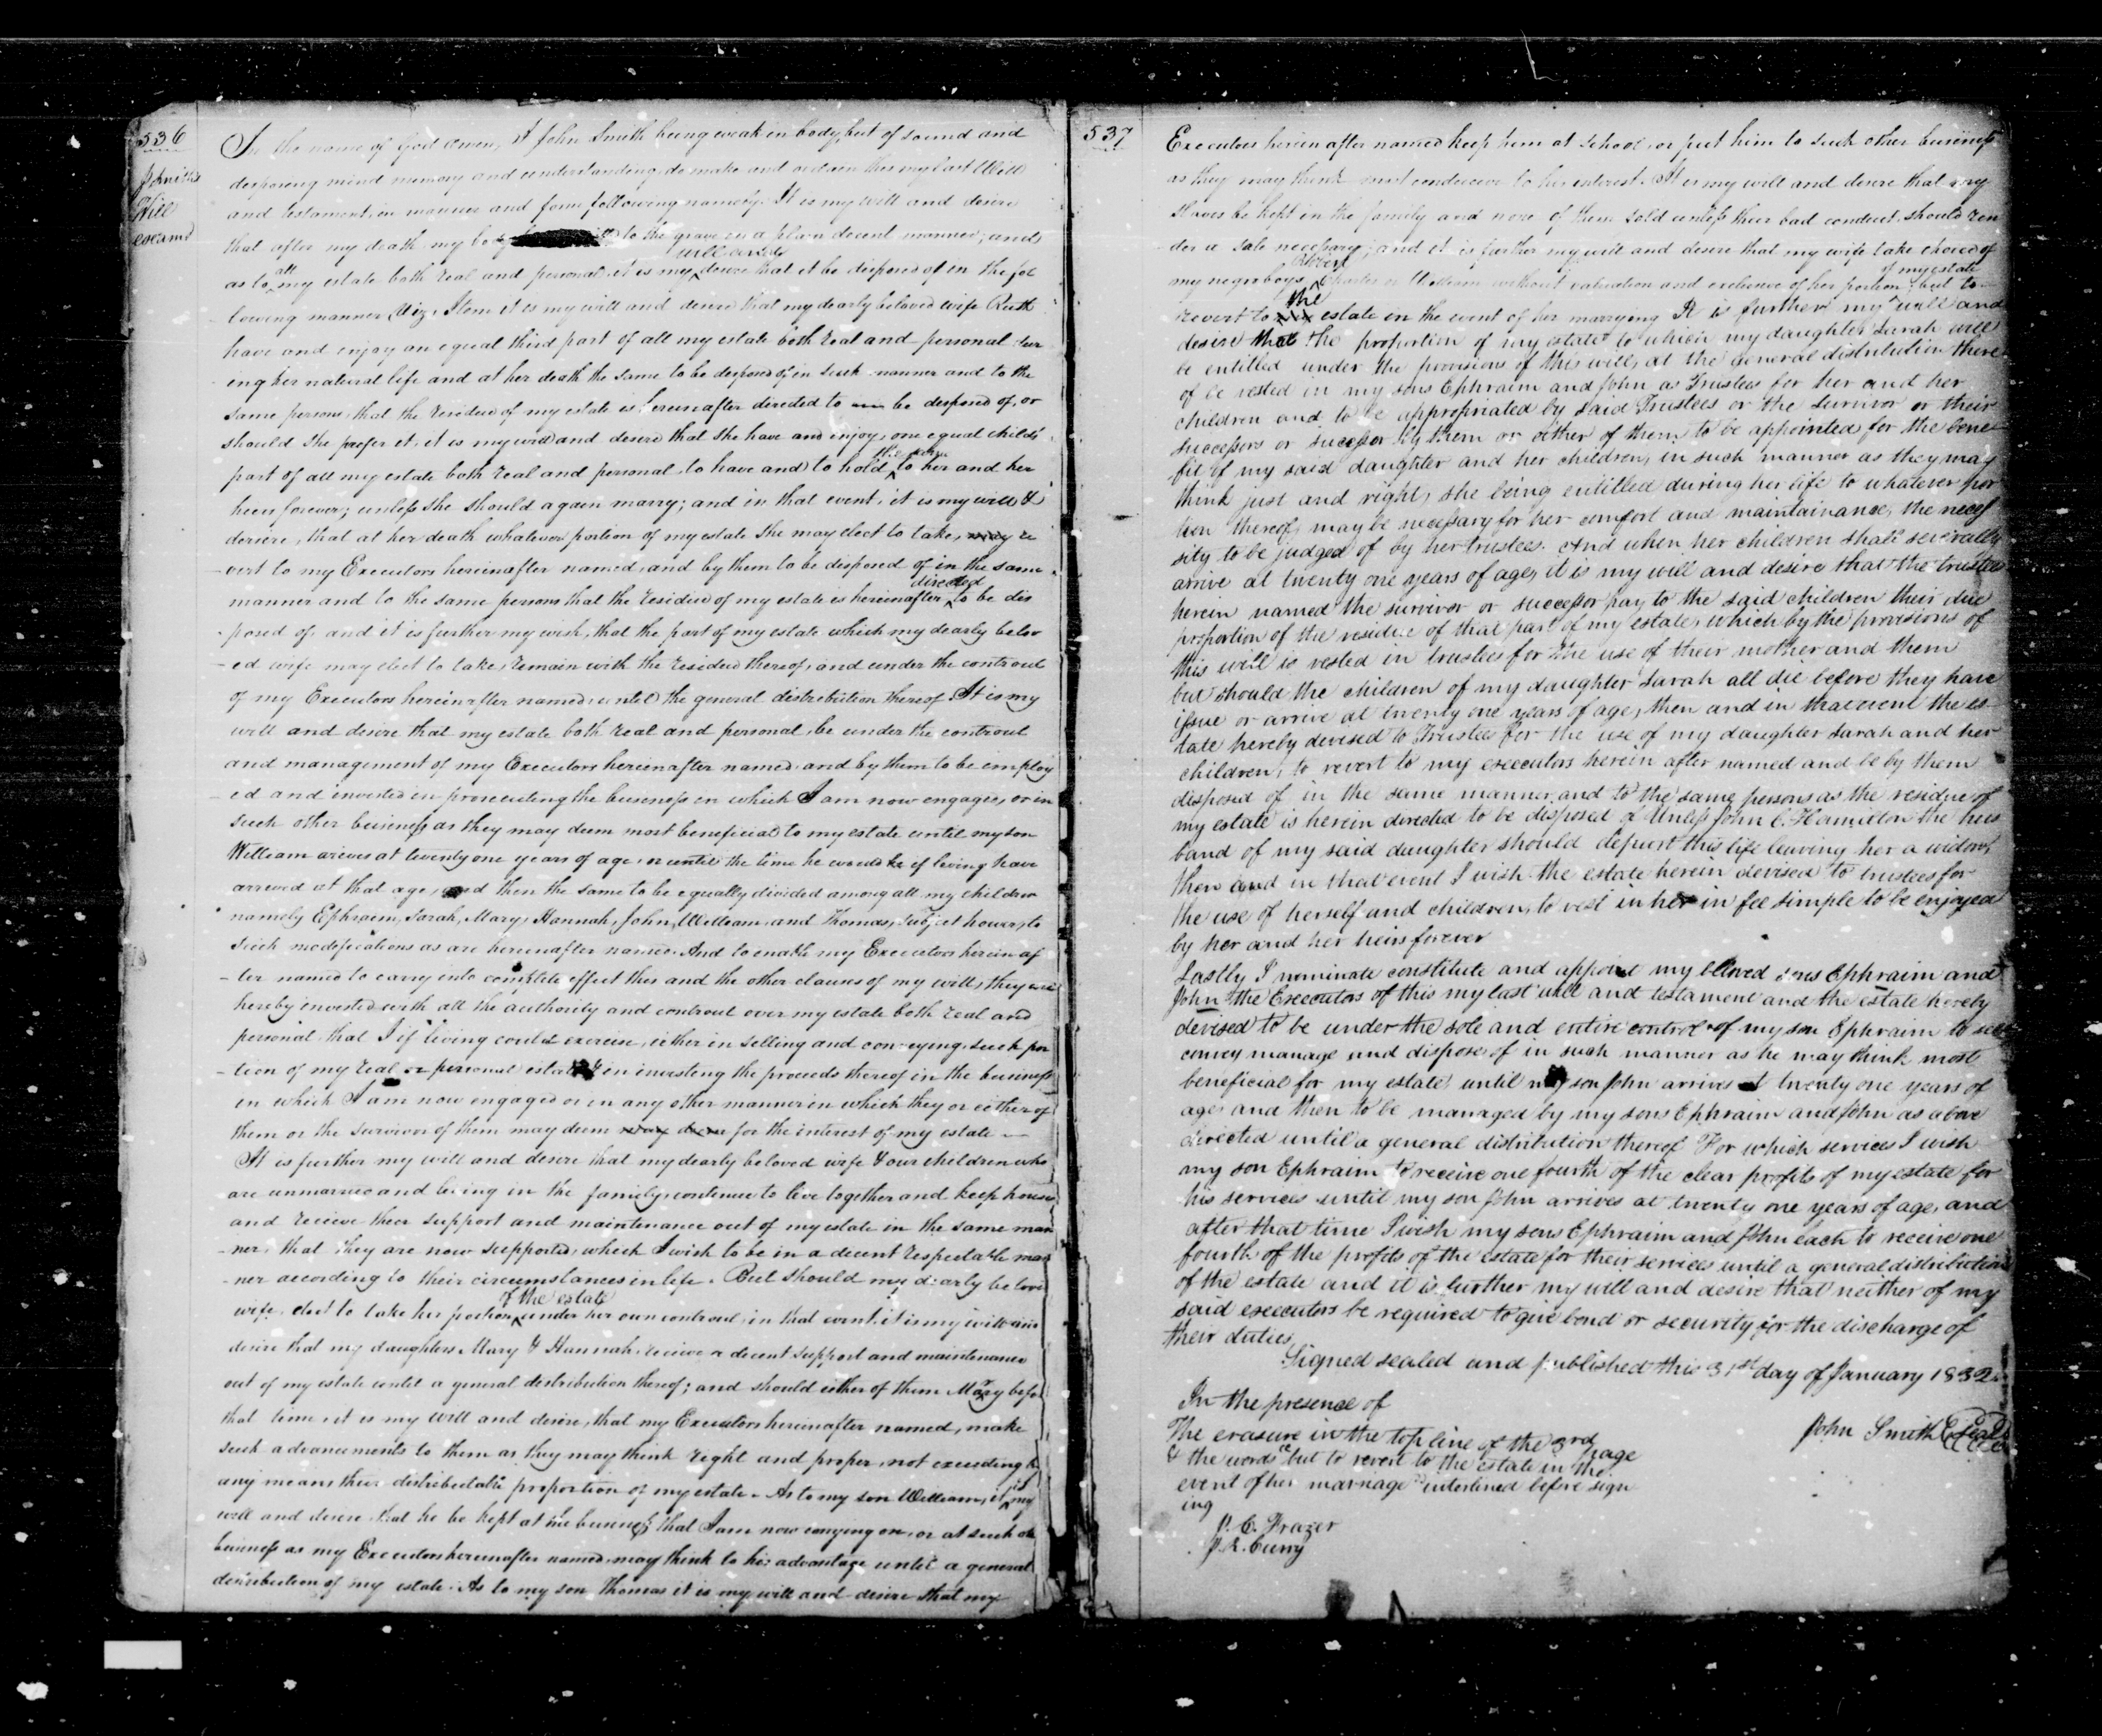 536
Will
In the name of God Amen, I John Smith being weak in body, but of sound and
disposing mind memory and understanding do make and ordain this my last Will
and testament, in manner and form following namely. It is my will and desire
that after my death my body to the grave in a plain decent manner, and
will and
as to all my estate both real and personal it is my desire that it be disposed of in the fol
lowing manner Viz, Item it is my will and desire that my dearly beloved wife Ruth
have and enjoy an equal third part of all my estate both real and personal dur
ing her natural life and at her death the same to be disposed of in such manner and to the
same persons, that the residue of my estate is hereinafter directed to be disposed of, or
should she prefer it, it is my will and desire that she have and enjoy, one equal child's
part of all my estate both real and personal, to have and to hold to her and her
heirs forever; unless she should again marry; and in that event, it is my will &
desire, that at her death whatever portion of my estate she may elect to take, re
vert to my Executors hereinafter named, and by them to be disposed of in the same
directed
manner and to the same persons that the residue of my estate is hereinafter to be dis
posed of, and it is further my wish, that the part of my estate which my dearly belov
ed wife may elect to take, remain with the residue thereof, and under the controul
of my Executors hereinafter named, until the general distribution thereof. It is my
will and desire that my estate both real and personal, be under the controul
and management of my Executors hereinafter named, and by them to be employ
ed and invested in prosecuting the business in which I am now engaged, or in
such other business as they may deem most beneficial to my estate until my son
William arives at twenty one years of age, or until the time he would if living have
arrived at that age, and then the same to be equally divided among all my children
namely Ephraim, Sarah, Mary, Hannah, John, William, and Thomas, subject however, to
such modifications as are hereinafter named. And to enable my Executors herein af
ter named to carry into complete effect this and the other clauses of my will, they are
hereby invested with all the authority and controul over my estate both real and
personal that I if living could exercise, either in selling and conveying such por
tion of my real or personal estate & in investing the proceeds thereof in the business
in which I am now engaged or in any other manner in which they or either of
them or the survivor of them may deem for the interest of my estate
It is further my will and desire that my dearly beloved wife & our children who
are unmarried and living in the family, continue to live together and keep house
and receive their support and maintenance out of my estate in the same man
ner, that they are now supported, which I wish to be in a decent respectable man
ner according to their circumstances in life. But should my dearly belove
of the estate
wife, elect to take her portion under her own controul, in that event, it is my will and
desire that my daughters Mary & Hannah, receive a decent support and maintenance
out of my estate until a general distribution thereof; and should either of them Marry befor
that time, it is my will and desire, that my Executors hereinafter named, make
such advancements to them as they may think right and proper, not exceeding by
any means their distributable proportion of my estate. As to my son William, it is my
will and desire that he be kept at the business that I am now carrying on, or at such
business as my Executors hereinafter named, may think to his advantage until a general
distribution of my estate. As to my son Thomas it is my will and desire that my
537
Executors herein after named keep him at school, or put him to such other business
as they may think most conducive to his interest. It is my will and desire that my
slaves be kept in the family and none of them sold unless their bad conduct should ren
der a sale necessary; and it is further my will and desire that my wife take choice of
of my estate
my negro boys Robert William without valuation and exclusive of her portion; but to
the
revert to estate in the event of her marrying It is further my will and
desire that the proportion of my estate to which my daughter Sarah will
be entitled under the provisions of this will, at the general distribution there
of be vested in my sons Ephraim and John as Trustees for her and her
children and to be appropriated by said Trustees or the survivor or their
successors or successor by them or either of them to be appointed for the bene
fit of my said daughter and her children, in such manner as they may
think just and right, she being entitled during her life to whatever por
tion thereof, may be necessary for her comfort and maintainance, the neces
sity to be judged of by her trustees. And when her children shall severally
arrive at twenty one years of age, it is my will and desire that the trustees
herein named the survivor or successor pay to the said children their due
proportion of the residue of that part of my estate, which by the provisions of
this will is vested in trustees for the use of their mother and them
but should the children of my daughter Sarah all die before they have
issue or arrive at twenty one years of age, then and in that event the es
tate hereby devised to Trustees for the use of my daughter Sarah and her
children, to revert to my executors herein after named and be by them
disposed of in the same manner and to the same persons as the residue of
my estate is herein directed to be disposed of Unless John C. Hamilton the hus
band of my said daughter should depart this life leaving her a widow,
then and in that event I wish the estate herein devised to trustees for
the use of herself and children, to vest in her in fee simple to be enjoyed
by her and her heirs forever
Lastly I nominate constitute and appoint my beloved sons Ephraim and
John the Executors of this my last will and testament and the estate hereby
devised to be under the sole and entire control of my son Ephraim to sell
convey manage and dispose of in such manner as he may think most
beneficial for my estate until my son John arrives at twenty one years of
age, and then to be managed by my sons Ephraim and John as above
directed until a general distribution thereof For which services I wish
my son Ephraim to receive one fourth of the clear profits of my estate for
his services until my son John arrives at twenty one years of age, and
after that time I wish my sons Ephraim and John each to receive one
fourth of the profits of the estate for their services until a general distribution
of the estate and it is further my will and desire that neither of my
said executors be required to give bond or security for the discharge of
their duties
Signed sealed and published this 31st day of January 1832
In the presence of
John Smith Seal
The erasure in the top line of the 3rd page
& the words "but to revert to the estate in the
event of her marriage" interlined before sign
ing
J. C. Frazer
J. R. Curry